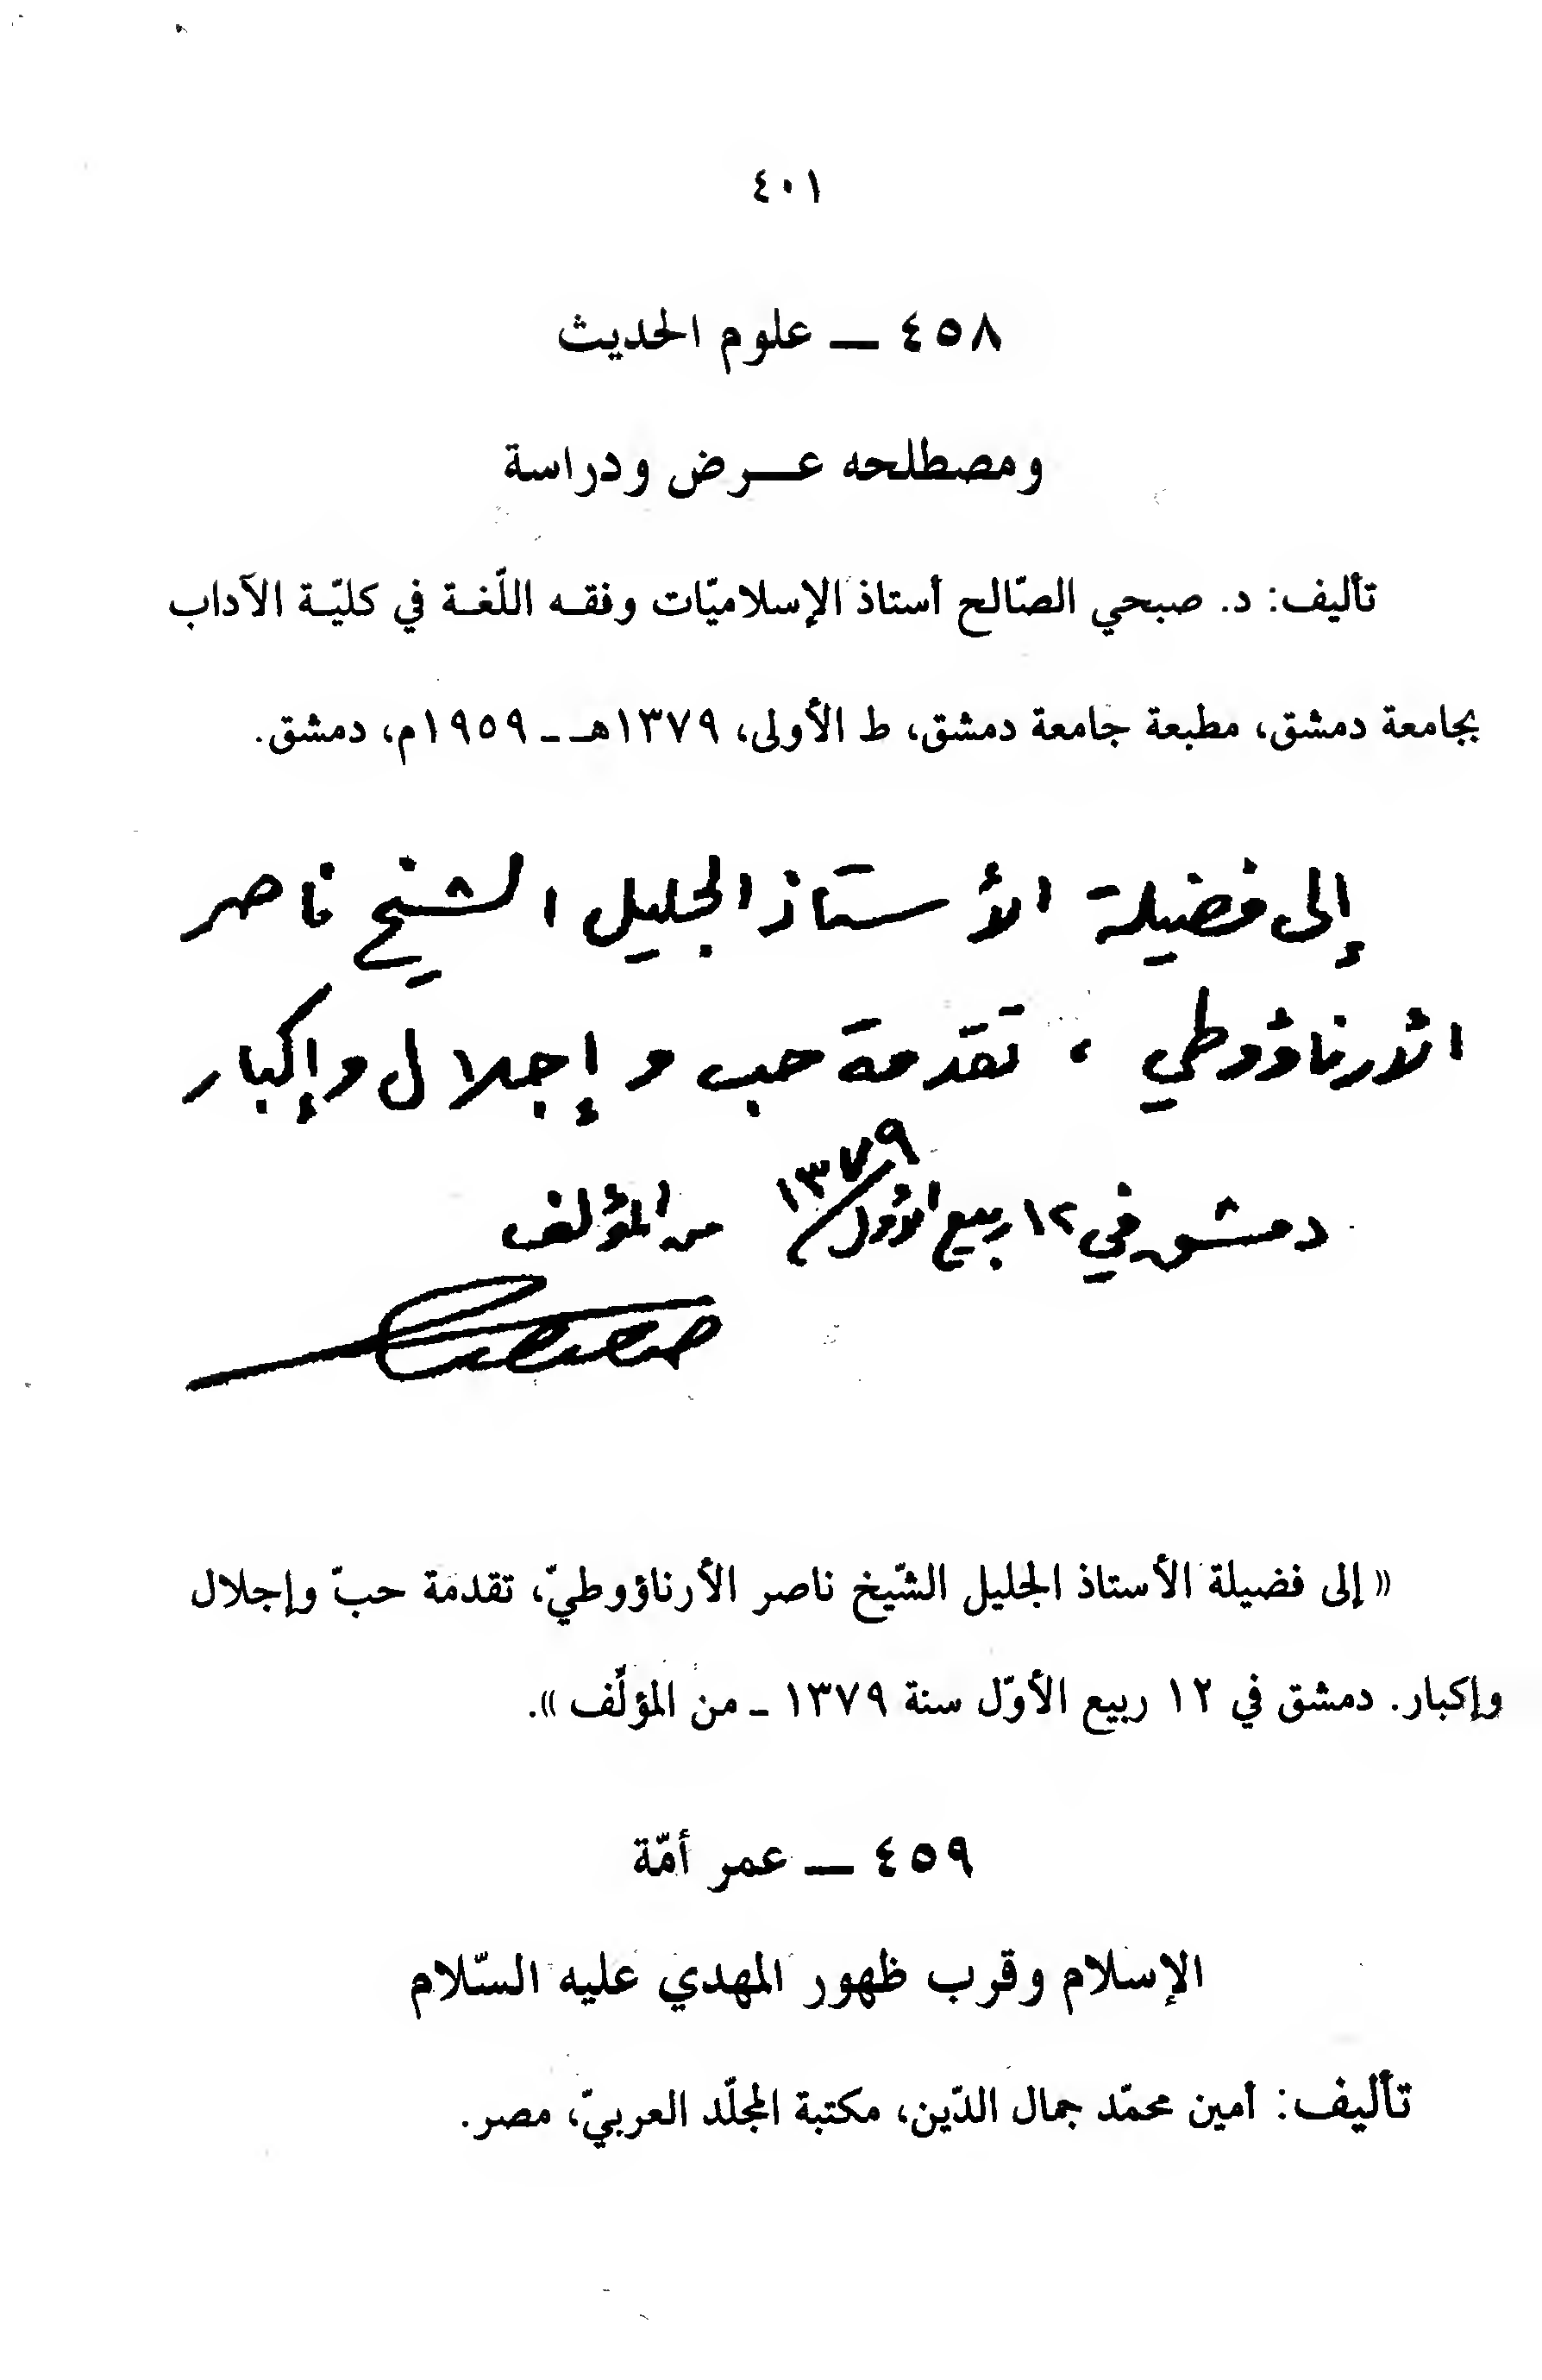 ٤٠١
٤٥٨ — علوم الحديث
ومصطلحه عـــرض ودراسة
تأليف: د. صبحي الصّالح أستاذ الإسلاميّات وفقـه اللّغـة في كليّـة الآداب
بجامعة دمشق، مطبعة جامعة دمشق، ط الأولى، ١٣٧٩هـ ـ ١٩٥٩م، دمشق.
إلى فضيلة الأستاذ الجليل الشيخ ناصر
الأرناؤوطي ، تقدمة حب و إجلال وإكبار
دمشق في ١٢ ربيع الأول/ ١٣٧٩ من المؤلف
« إلى فضيلة الأستاذ الجليل الشّيخ ناصر الأرناؤوطيّ، تقدمة حبّ وإجلال
وإكبار. دمشق في ١٢ ربيع الأوّل سنة ١٣٧٩ ـ من المؤلِّف ».
٤٥٩ — عمر أمّة
الإسلام وقرب ظهور المهدي عليه السّلام
تأليف: أمين محمّد جمال الدّين، مكتبة المجلّد العربيّ، مصر.